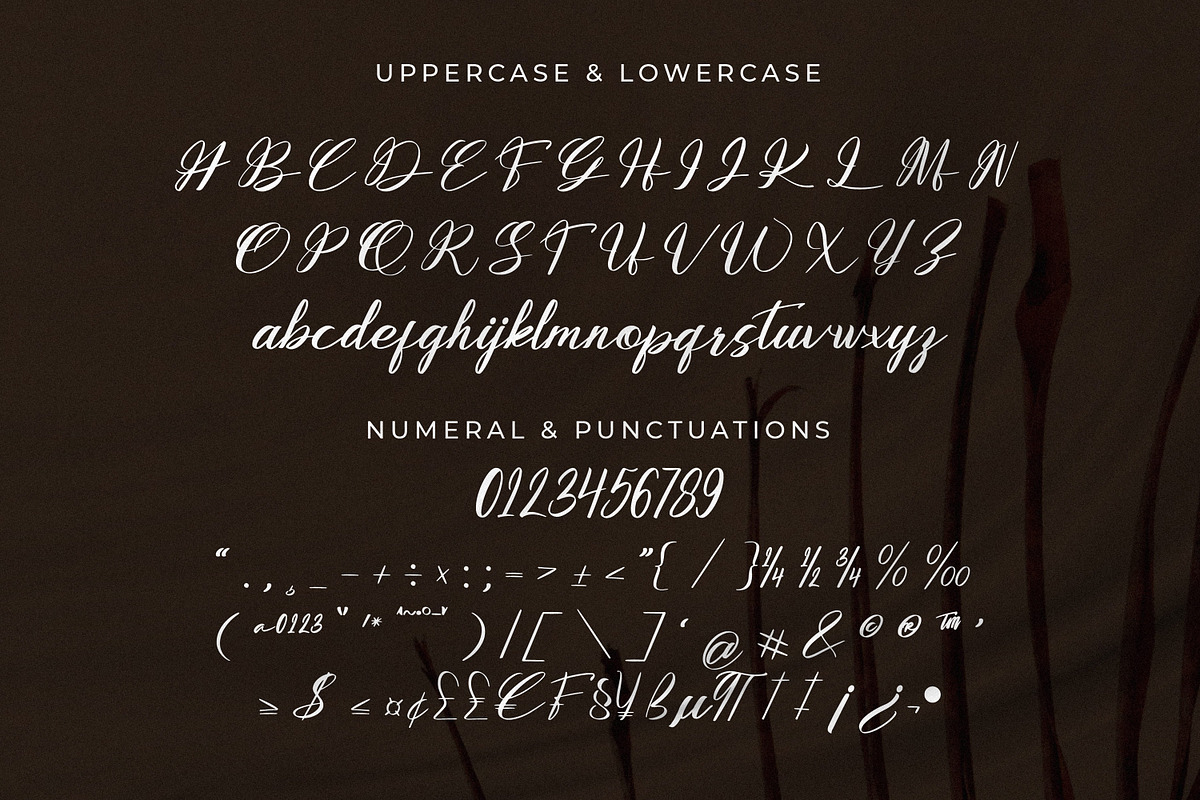 UPPERCASE & LOWERCASE
A B C D E F G H I J K L M N
O P Q R S T U V W X Y Z
abcdefghijklmnopqrstuvwxyz
NUMERAL & PUNCTUATIONS
0123456789
“ . , ¸ _ – + ÷ x : ; = > ± < ” { / } ¼ ½ ¾ % ‰
( a0123 " / * ^ ~ ) / [ \ ] ‘ @ # & © ® ™ ’
≥ $ ≤ ¤ ¢ £ £ € F § ¥ β µ π † ‡ ¡ ¿ ¬ •